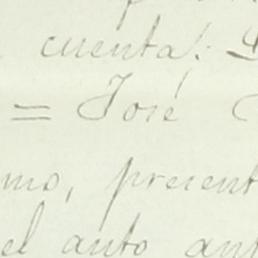 cuenta;
= José
mo, present
el auto ant